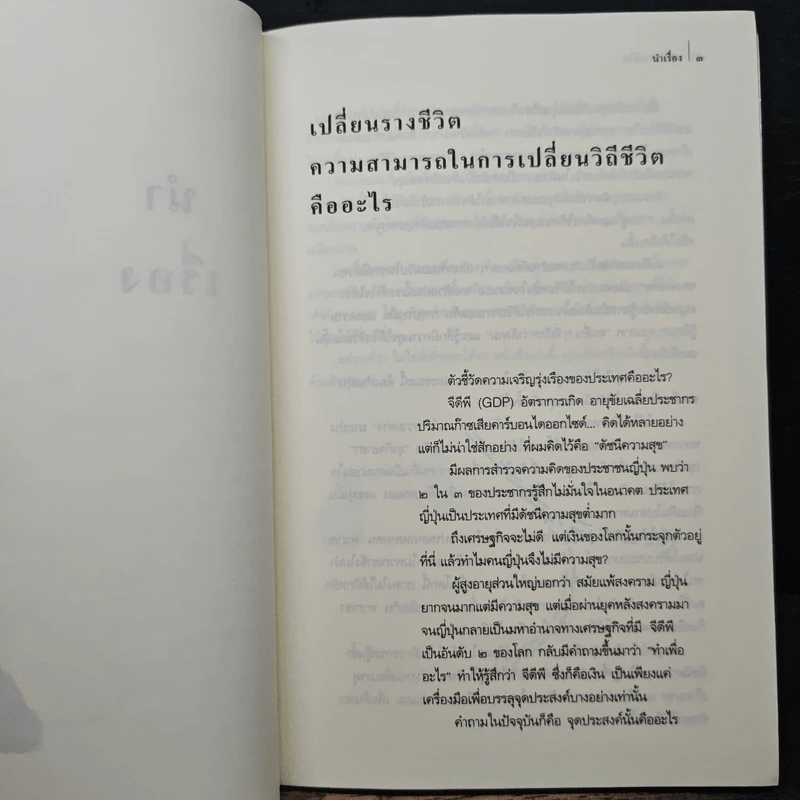 นำเรื่อง | ๓
เปลี่ยนรางชีวิต
ความสามารถในการเปลี่ยนวิถีชีวิต
คืออะไร
ตัวชี้วัดความเจริญรุ่งเรืองของประเทศคืออะไร?
จีดีพี (GDP) อัตราการเกิด อายุขัยเฉลี่ยประชากร
ปริมาณก๊าซเสียคาร์บอนไดออกไซด์... คิดได้หลายอย่าง
แต่ก็ไม่น่าใช่สักอย่าง ที่ผมคิดไว้คือ “ดัชนีความสุข”
มีผลการสำรวจความคิดของประชาชนญี่ปุ่น พบว่า
๒ ใน ๓ ของประชากรรู้สึกไม่มั่นใจในอนาคต ประเทศ
ญี่ปุ่นเป็นประเทศที่มีดัชนีความสุขต่ำมาก
ถึงเศรษฐกิจจะไม่ดี แต่เงินของโลกนั้นกระจุกตัวอยู่
ที่นี่ แล้วทำไมคนญี่ปุ่นจึงไม่มีความสุข?
ผู้สูงอายุส่วนใหญ่บอกว่า สมัยแพ้สงคราม ญี่ปุ่น
ยากจนมากแต่มีความสุข แต่เมื่อผ่านยุคหลังสงครามมา
จนญี่ปุ่นกลายเป็นมหาอำนาจทางเศรษฐกิจที่มี จีดีพี
เป็นอันดับ ๒ ของโลก กลับมีคำถามขึ้นมาว่า “ทำเพื่อ
อะไร” ทำให้รู้สึกว่า จีดีพี ซึ่งก็คือเงิน เป็นเพียงแค่
เครื่องมือเพื่อบรรลุจุดประสงค์บางอย่างเท่านั้น
คำถามในปัจจุบันก็คือ จุดประสงค์นั้นคืออะไร